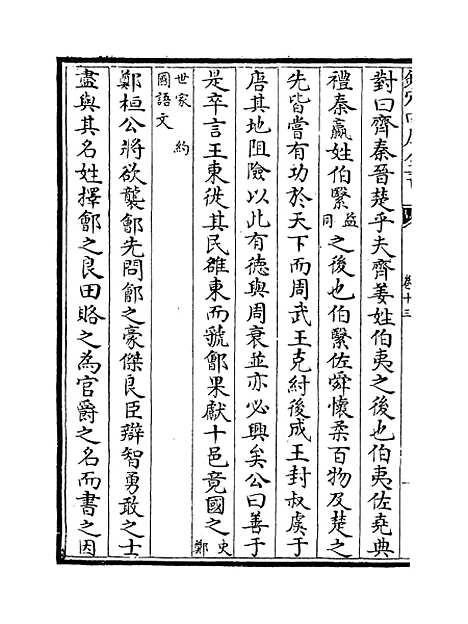 對曰齊秦晉楚乎夫齊姜姓伯夷之後也伯夷佐堯典
禮秦嬴姓伯繄益同之後也伯繄佐舜懷柔百物及楚之
先皆嘗有功於天下而周武王克紂後成王封叔虞于
唐其地阻險以此有德與周衰並亦必興矣公曰善于
是卒言王東徙其民雒東而虢鄶果獻十邑竟國之史鄭
世家約
國語文
鄭桓公將欲襲鄶先問鄶之豪傑良臣辯智勇敢之士
盡與其名姓擇鄶之良田賂之為官爵之名而書之因
卷十三